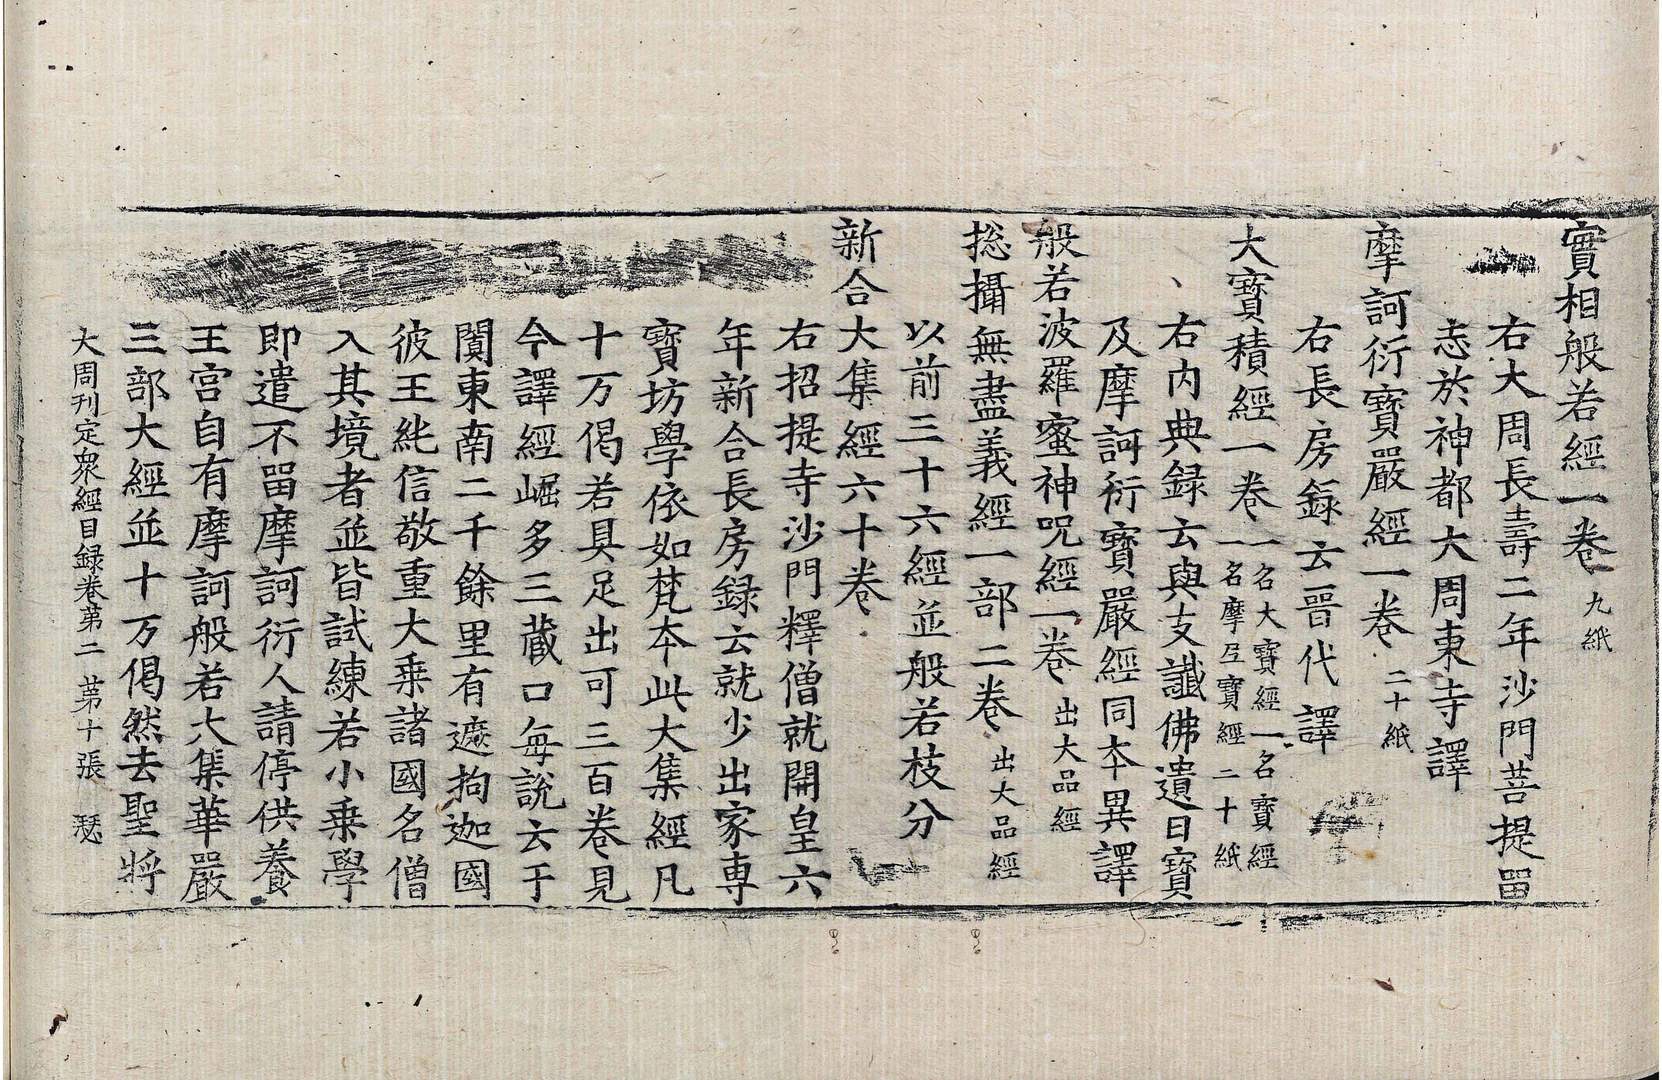 實相般若經一卷 九紙
右大周長壽二年沙門菩提畱
志於神都大周東寺譯
摩訶衍寶嚴經一卷 二十紙
右長房錄云晉代譯
大寶積經一卷 一名大寶經一名寶經一名摩𡰱寶經二十紙
右内典録云與支讖佛遺日寶
及摩訶衍寶嚴經同本異譯
般若波羅蜜神呪經一卷 出大品經
揔攝無盡義經一部二卷 出大品經
以前三十六經並般若枝分
新合大集經六十卷
右招提寺沙門釋僧就開皇六
年新合長房録云就少出家專
寶坊學依如梵本此大集經凡
十万偈若具足出可三百卷見
今譯經崛多三藏口每說云于
闐東南二千餘里有遮拘迦國
彼王純信敬重大乗諸國名僧
入其境者並皆試練若小乗學
即遣不畱摩訶衍人請停供養
王宫自有摩訶般若大集華嚴
三部大經並十万偈然去聖將
大周刊定衆經目録卷第二 第十張 瑟